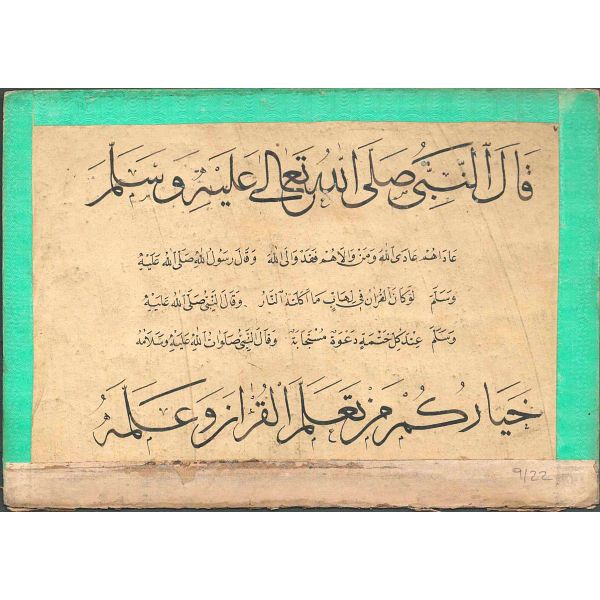 قَالَ ٱلنَّبِيُّ صَلَى اللهُ تَعَالىٰ عَلَيْهِ وَسَلَّمَ
عَادَاهُمْ عَادَى اللهَ وَمَنْ وَالَاهُمْ فَقَدْ وَالَى اللهَ وَقَالَ رَسُولُ اللهِ صَلَّى اللهُ عَلَيْهِ
وَسَلَّمَ لَوْ كَانَ الْقُرْاٰنُ فِي اِهَابٍ مَا اَكَلَتْهُ النَّارُ وَقَالَ النَّبِيُّ صَلَّى اللهُ عَلَيْهِ
وَسَلَّمَ عِنْدَ كُلِّ خَتْمَةٍ دَعْوَةٌ مُسْتَجَابَةٌ وَقَالَ النَّبِيُّ صَلَوَاتُ اللهِ عَلَيْهِ وَسَلَامُهُ
خِيَارُكُمْ مَنْ تَعَلَّمَ الْقُرْاٰنَ وَعَلَّمَهُ
9/22